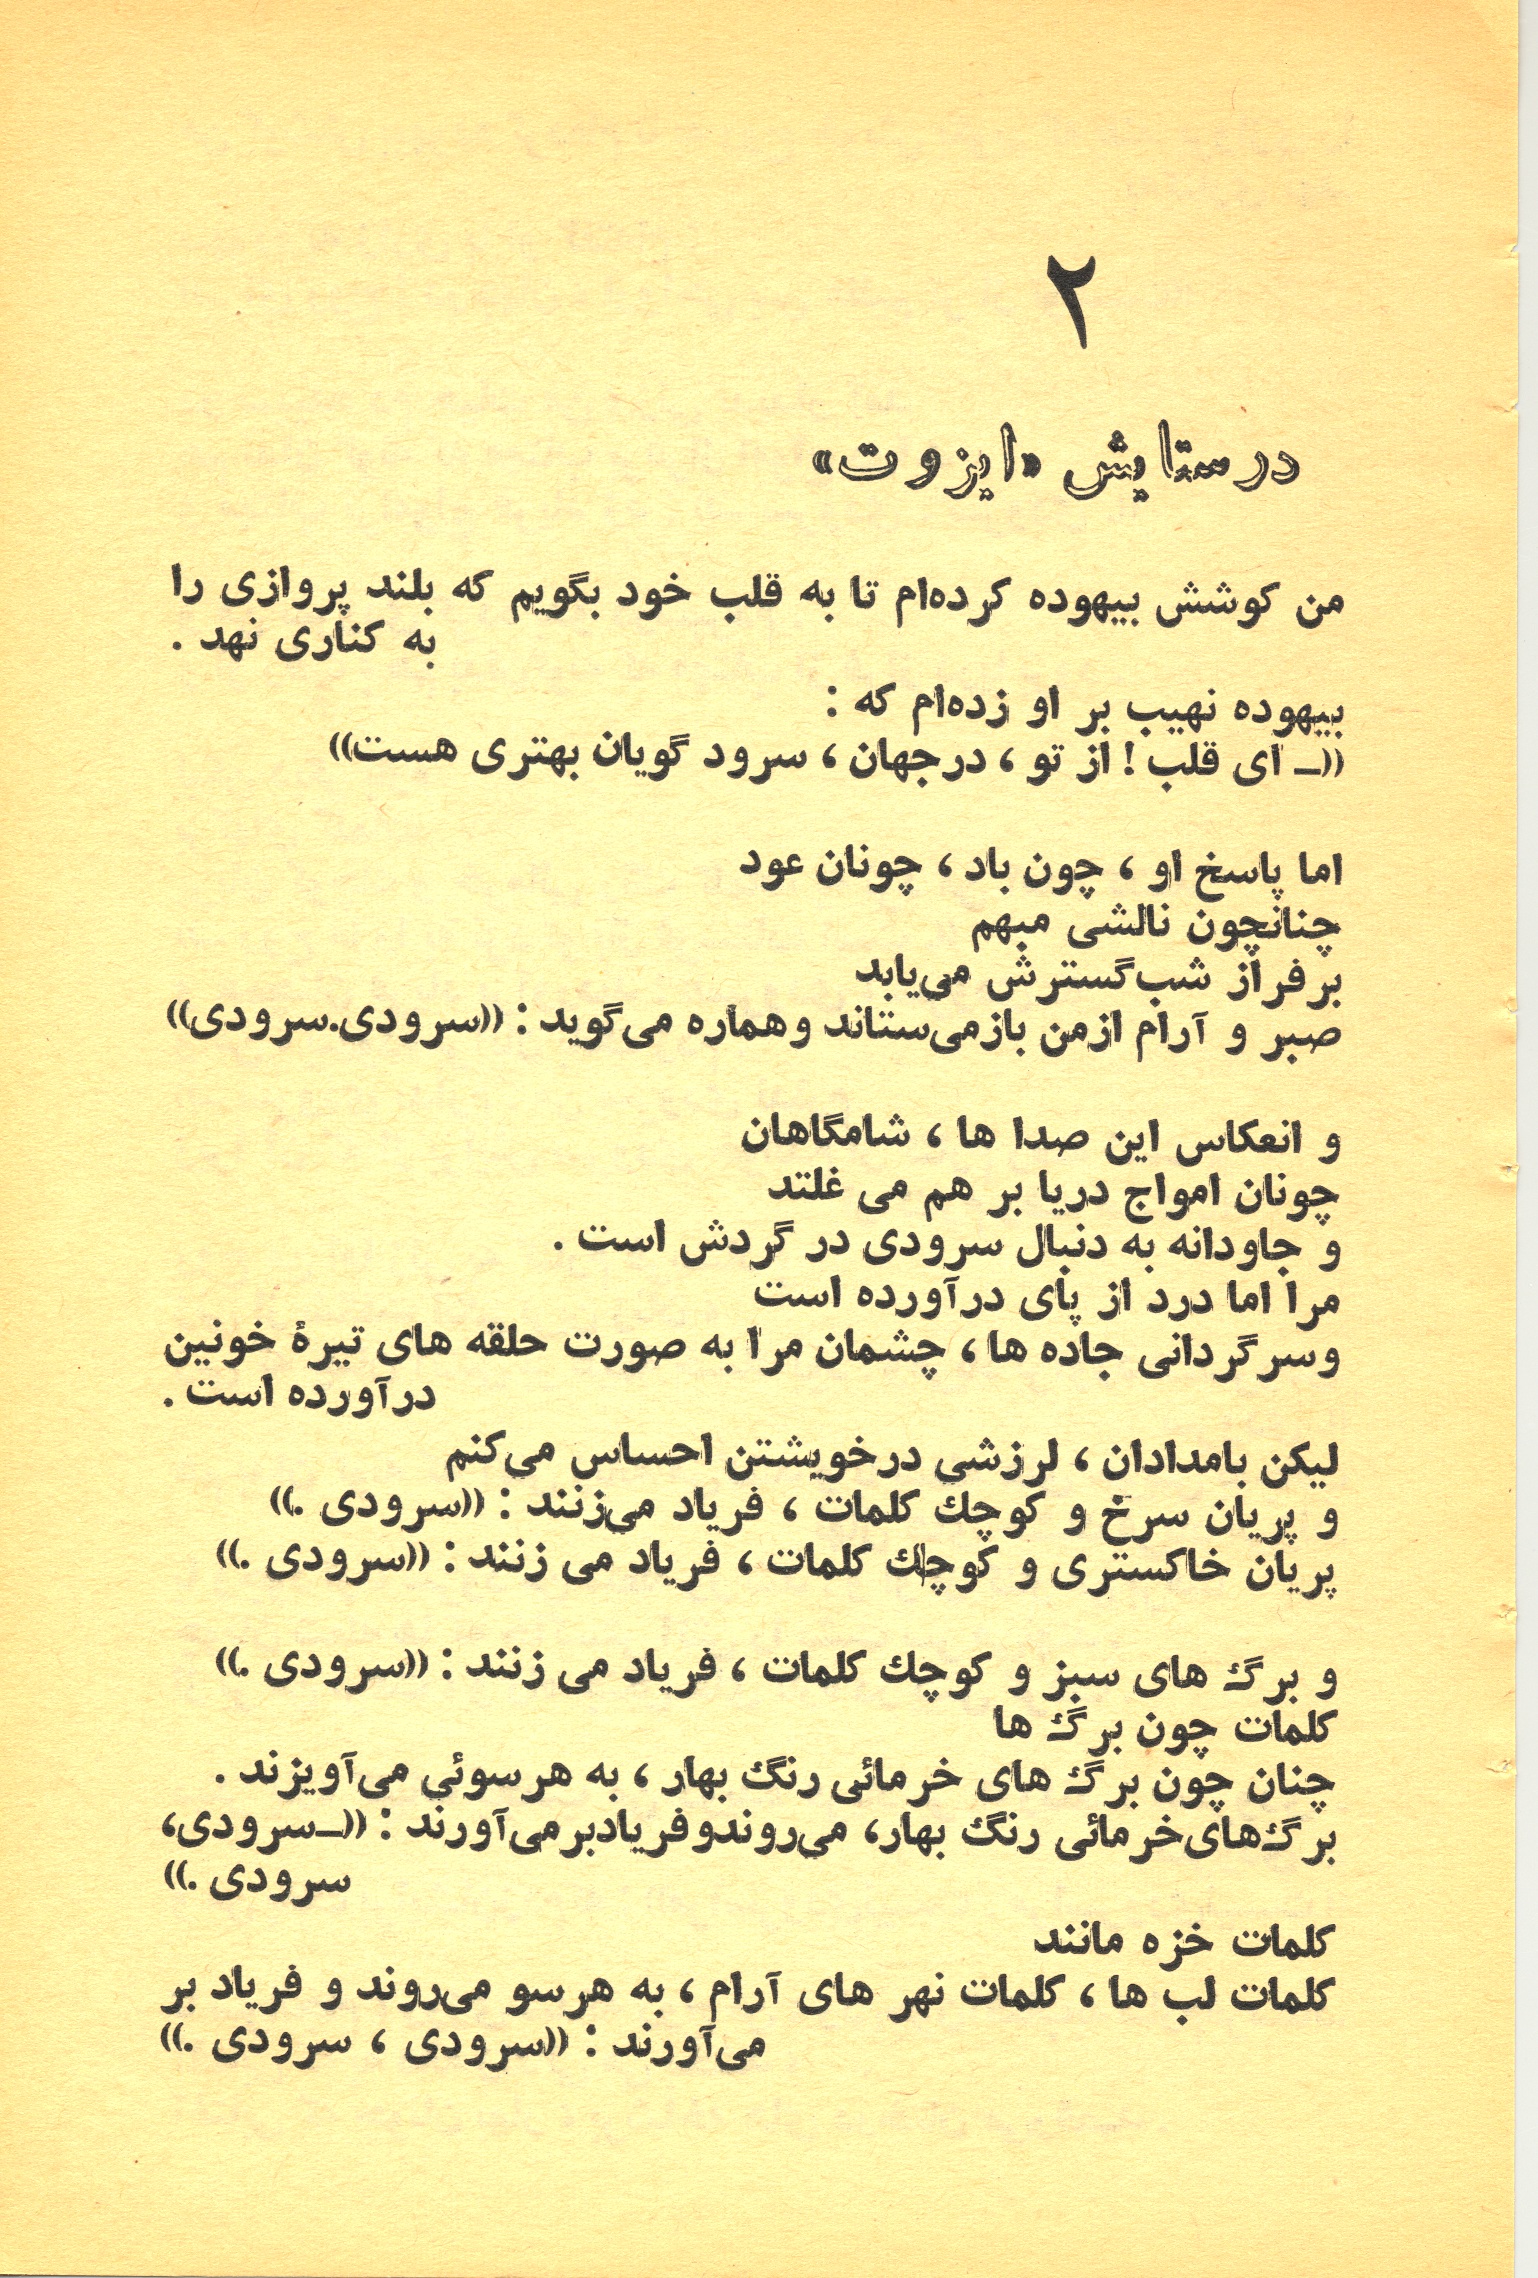 ۲
در ستایش «ایزوت»
من کوشش بیهوده کرده‌ام تا به قلب خود بگویم که بلند پروازی را
به کناری نهد .
بیهوده نهیب بر او زده‌ام که :
((ـ ای قلب ! از تو ، درجهان ، سرود گویان بهتری هست))
اما پاسخ او ، چون باد ، چونان عود
چنانچون نالشی مبهم
برفراز شب‌گسترش می‌یابد
صبر و آرام ازمن بازمی‌ستاند وهماره می‌گوید : ((سرودی.سرودی))
و انعکاس این صدا ها ، شامگاهان
چونان امواج دریا بر هم می غلتد
و جاودانه به دنبال سرودی در گردش است .
مرا اما درد از پای درآورده است
وسرگردانی جاده ها ، چشمان مرا به صورت حلقه های تیرهٔ خونین
درآورده است .
لیکن بامدادان ، لرزشی درخویشتن احساس می‌کنم
و پریان سرخ و کوچك کلمات ، فریاد می‌زنند : ((سرودی .))
پریان خاکستری و کوچك کلمات ، فریاد می زنند : ((سرودی .))
و برگ های سبز و کوچك کلمات ، فریاد می زنند : ((سرودی .))
کلمات چون برگ ها
چنان چون برگ های خرمائی رنگ بهار ، به هرسوئی می‌آویزند .
برگ‌های‌خرمائی رنگ بهار، می‌روندوفریادبرمی‌آورند : ((ـسرودی،
سرودی .))
کلمات خزه مانند
کلمات لب ها ، کلمات نهر های آرام ، به هرسو می‌روند و فریاد بر
می‌آورند : ((سرودی ، سرودی .))